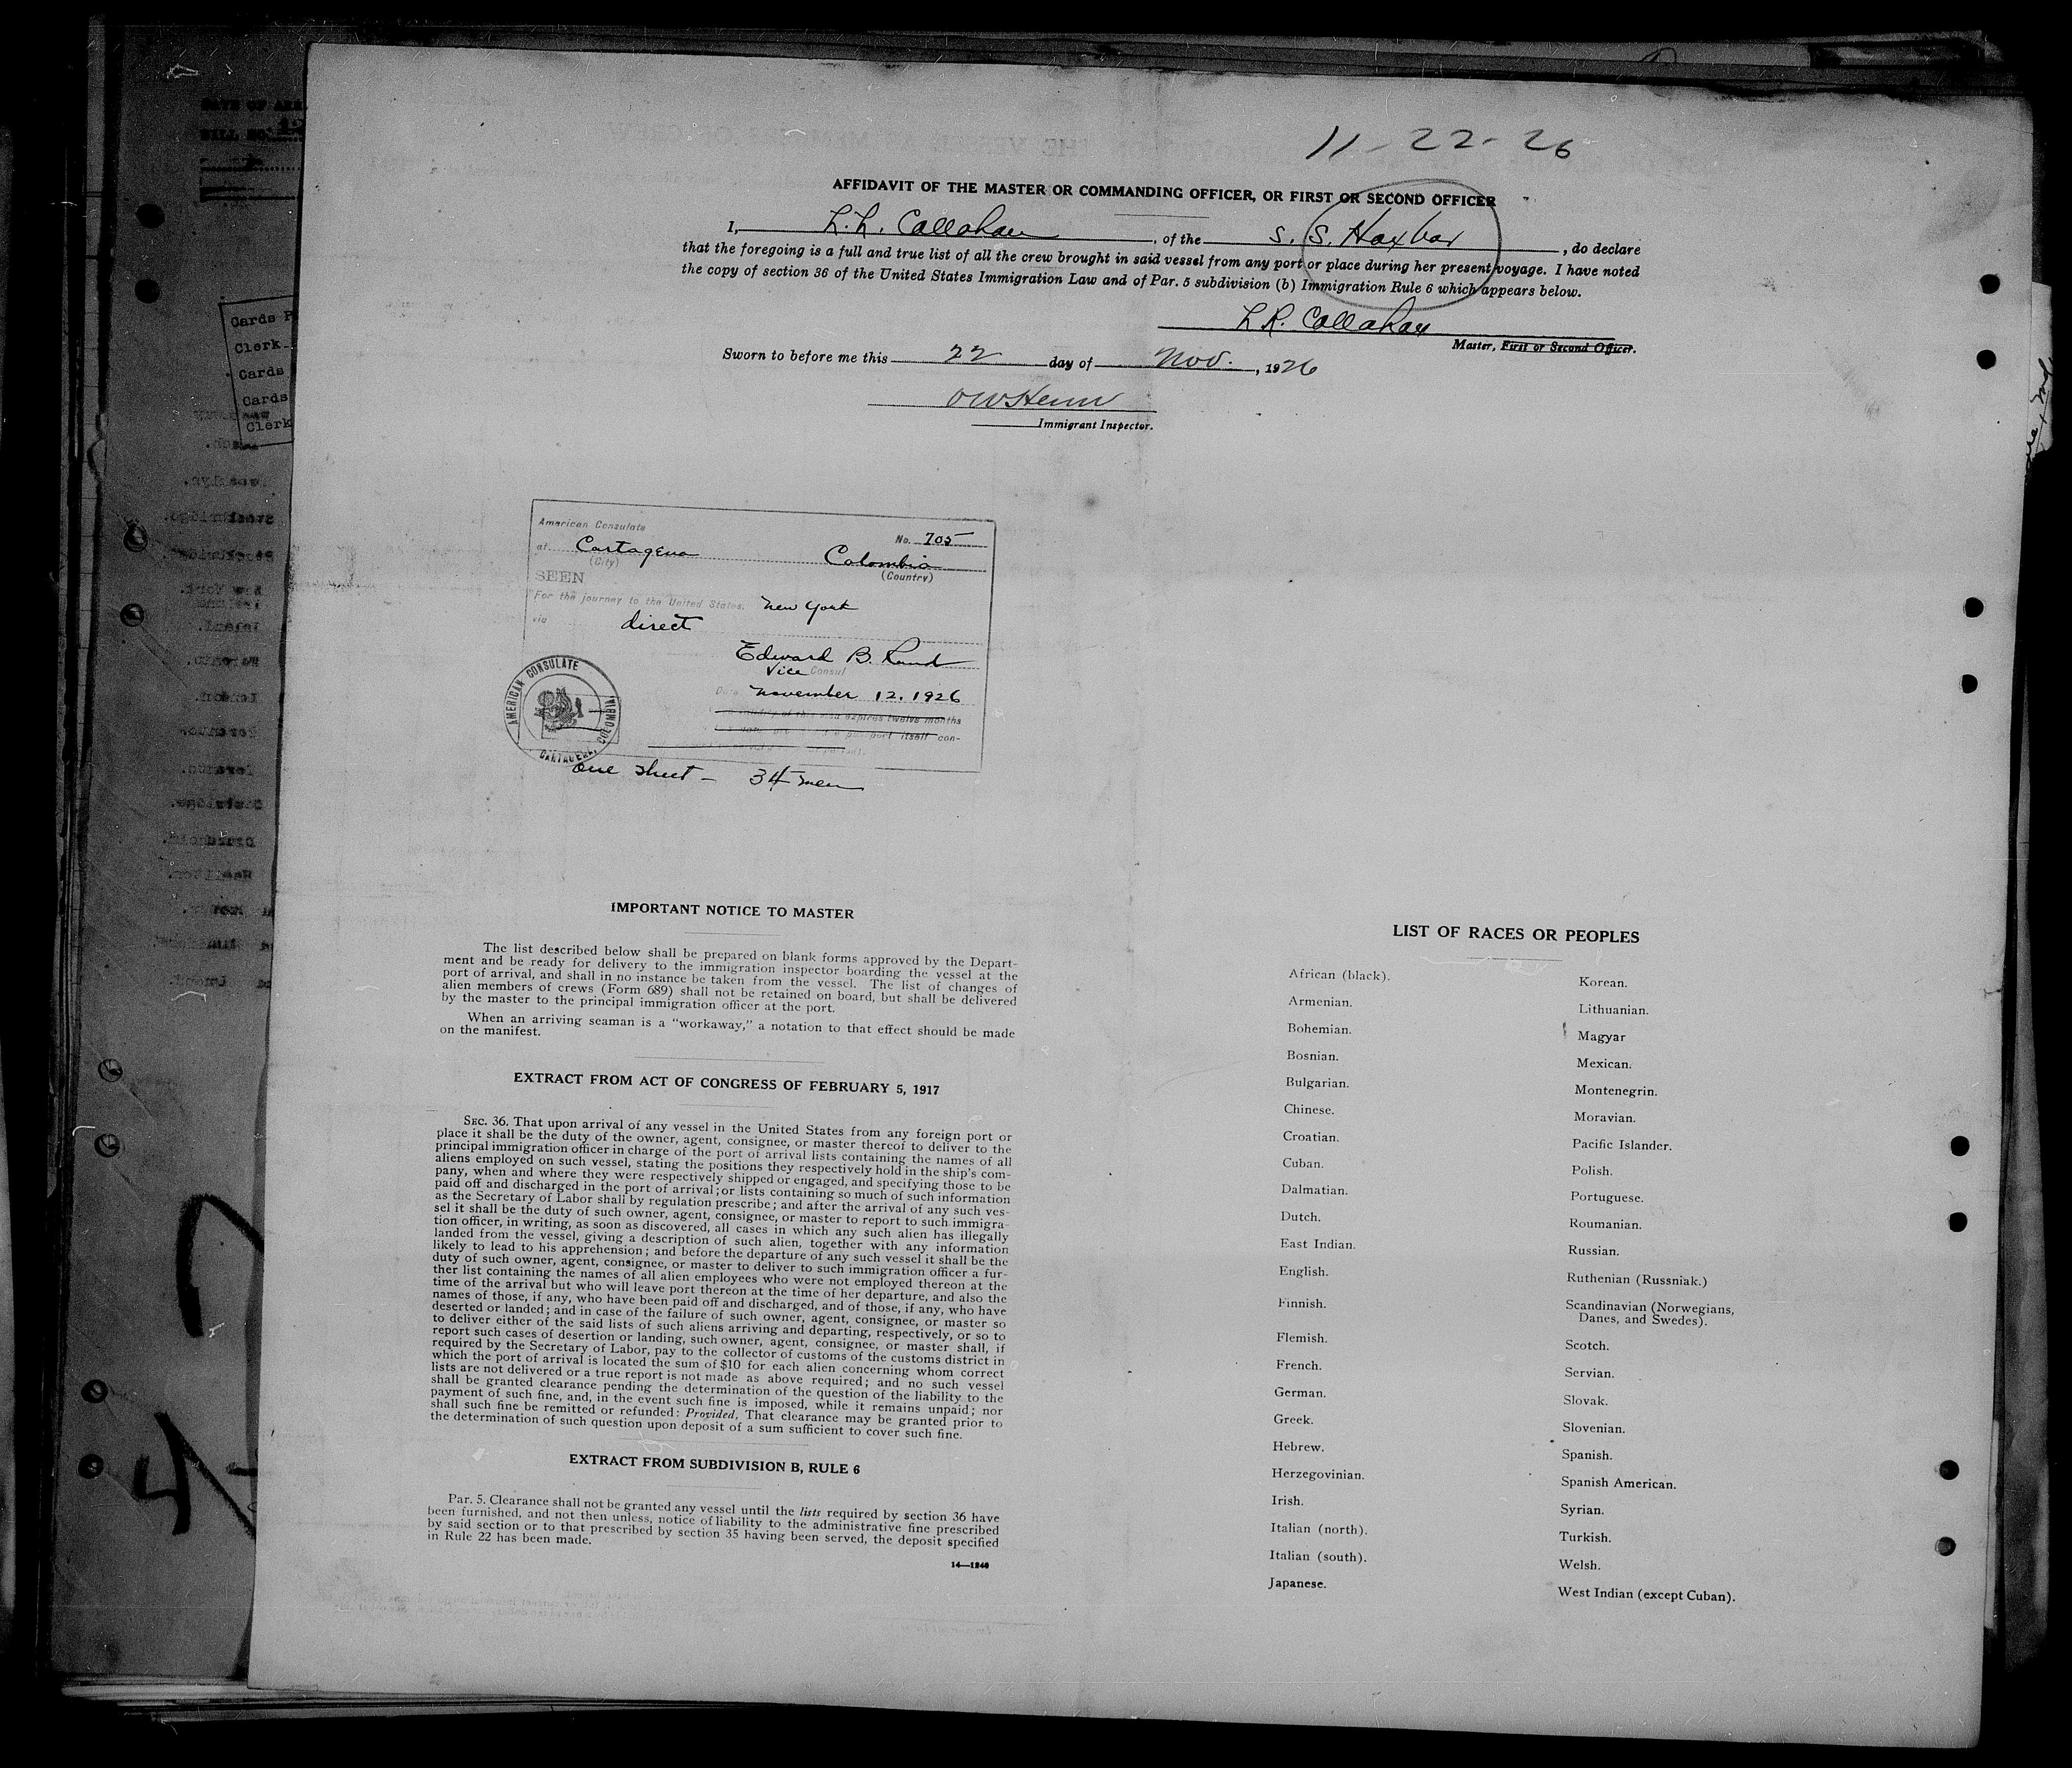 11-22-26
AFFIDAVIT OF THE MASTER OR COMMANDING OFFICER, OR FIRST OR SECOND OFFICER
I, L. L. Callahan, of the S. S. Haxbar, do declare
that the foregoing is a full and true list of all the crew brought in said vessel from any port or place during her present voyage. I have noted
the copy of section 36 of the United States Immigration Law and of Par. 5 subdivision (b) Immigration Rule 6 which appears below.
L R. Callahan
Master, First or Second Officer.
Sworn to before me this 22 day of Nov., 1926
Immigrant Inspector.
American Consulate
No. 705
at Cartagena Colombia
(City) (Country)
SEEN
For the journey to the United States. New York
via direct
Edward B. Rand
Vice Consul
Date November 12, 1926
expires twelve months
port itself con-
AMERICAN CONSULATE
CARTAGENA, COLOMBIA
one sheet - 34 men
IMPORTANT NOTICE TO MASTER
The list described below shall be prepared on blank forms approved by the Depart-
ment and be ready for delivery to the immigration inspector boarding the vessel at the
port of arrival, and shall in no instance be taken from the vessel. The list of changes of
alien members of crews (Form 689) shall not be retained on board, but shall be delivered
by the master to the principal immigration officer at the port.
When an arriving seaman is a "workaway," a notation to that effect should be made
on the manifest.
EXTRACT FROM ACT OF CONGRESS OF FEBRUARY 5, 1917
SEC. 36. That upon arrival of any vessel in the United States from any foreign port or
place it shall be the duty of the owner, agent, consignee, or master thereof to deliver to the
principal immigration officer in charge of the port of arrival lists containing the names of all
aliens employed on such vessel, stating the positions they respectively hold in the ship's com-
pany, when and where they were respectively shipped or engaged, and specifying those to be
paid off and discharged in the port of arrival; or lists containing so much of such information
as the Secretary of Labor shall by regulation prescribe; and after the arrival of any such ves-
sel it shall be the duty of such owner, agent, consignee, or master to report to such immigra-
tion officer, in writing, as soon as discovered, all cases in which any such alien has illegally
landed from the vessel, giving a description of such alien, together with any information
likely to lead to his apprehension; and before the departure of any such vessel it shall be the
duty of such owner, agent, consignee, or master to deliver to such immigration officer a fur-
ther list containing the names of all alien employees who were not employed thereon at the
time of the arrival but who will leave port thereon at the time of her departure, and also the
names of those, if any, who have been paid off and discharged, and of those, if any, who have
deserted or landed; and in case of the failure of such owner, agent, consignee, or master so
to deliver either of the said lists of such aliens arriving and departing, respectively, or so to
report such cases of desertion or landing, such owner, agent, consignee, or master shall, if
required by the Secretary of Labor, pay to the collector of customs of the customs district in
which the port of arrival is located the sum of $10 for each alien concerning whom correct
lists are not delivered or a true report is not made as above required; and no such vessel
shall be granted clearance pending the determination of the question of the liability to the
payment of such fine, and, in the event such fine is imposed, while it remains unpaid; nor
shall such fine be remitted or refunded: Provided, That clearance may be granted prior to
the determination of such question upon deposit of a sum sufficient to cover such fine.
EXTRACT FROM SUBDIVISION B, RULE 6
Par. 5. Clearance shall not be granted any vessel until the lists required by section 36 have
been furnished, and not then unless, notice of liability to the administrative fine prescribed
by said section or to that prescribed by section 35 having been served, the deposit specified
in Rule 22 has been made.
14—1240
LIST OF RACES OR PEOPLES
African (black).
Armenian.
Bohemian.
Bosnian.
Bulgarian.
Chinese.
Croatian.
Cuban.
Dalmatian.
Dutch.
East Indian.
English.
Finnish.
Flemish.
French.
German.
Greek.
Hebrew.
Herzegovinian.
Irish.
Italian (north).
Italian (south).
Japanese.
Korean.
Lithuanian.
Magyar
Mexican.
Montenegrin.
Moravian.
Pacific Islander.
Polish.
Portuguese.
Roumanian.
Russian.
Ruthenian (Russniak.)
Scandinavian (Norwegians,
Danes, and Swedes).
Scotch.
Servian.
Slovak.
Slovenian.
Spanish.
Spanish American.
Syrian.
Turkish.
Welsh.
West Indian (except Cuban).
Cards
Clerk
Cards
Cards
Clerk